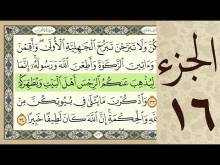 كُنَّ وَلَا تَبَرَّجْنَ تَبَرُّجَ الْجَٰهِلِيَّةِ الْأُولَىٰ وَأَقِمْنَ
وَءَاتِينَ الزَّكَوٰةَ وَأَطِعْنَ اللَّهَ وَرَسُولَهُ إِنَّمَا
لِيُذْهِبَ عَنكُمُ الرِّجْسَ أَهْلَ الْبَيْتِ وَيُطَهِّرَكُمْ
وَاذْكُرْنَ مَا يُتْلَىٰ فِي بُيُوتِكُنَّ مِنْ
وَالْحِكْمَةِ إِنَّ اللَّهَ كَانَ لَطِيفًا خَبِيرًا
الجزء
١٦